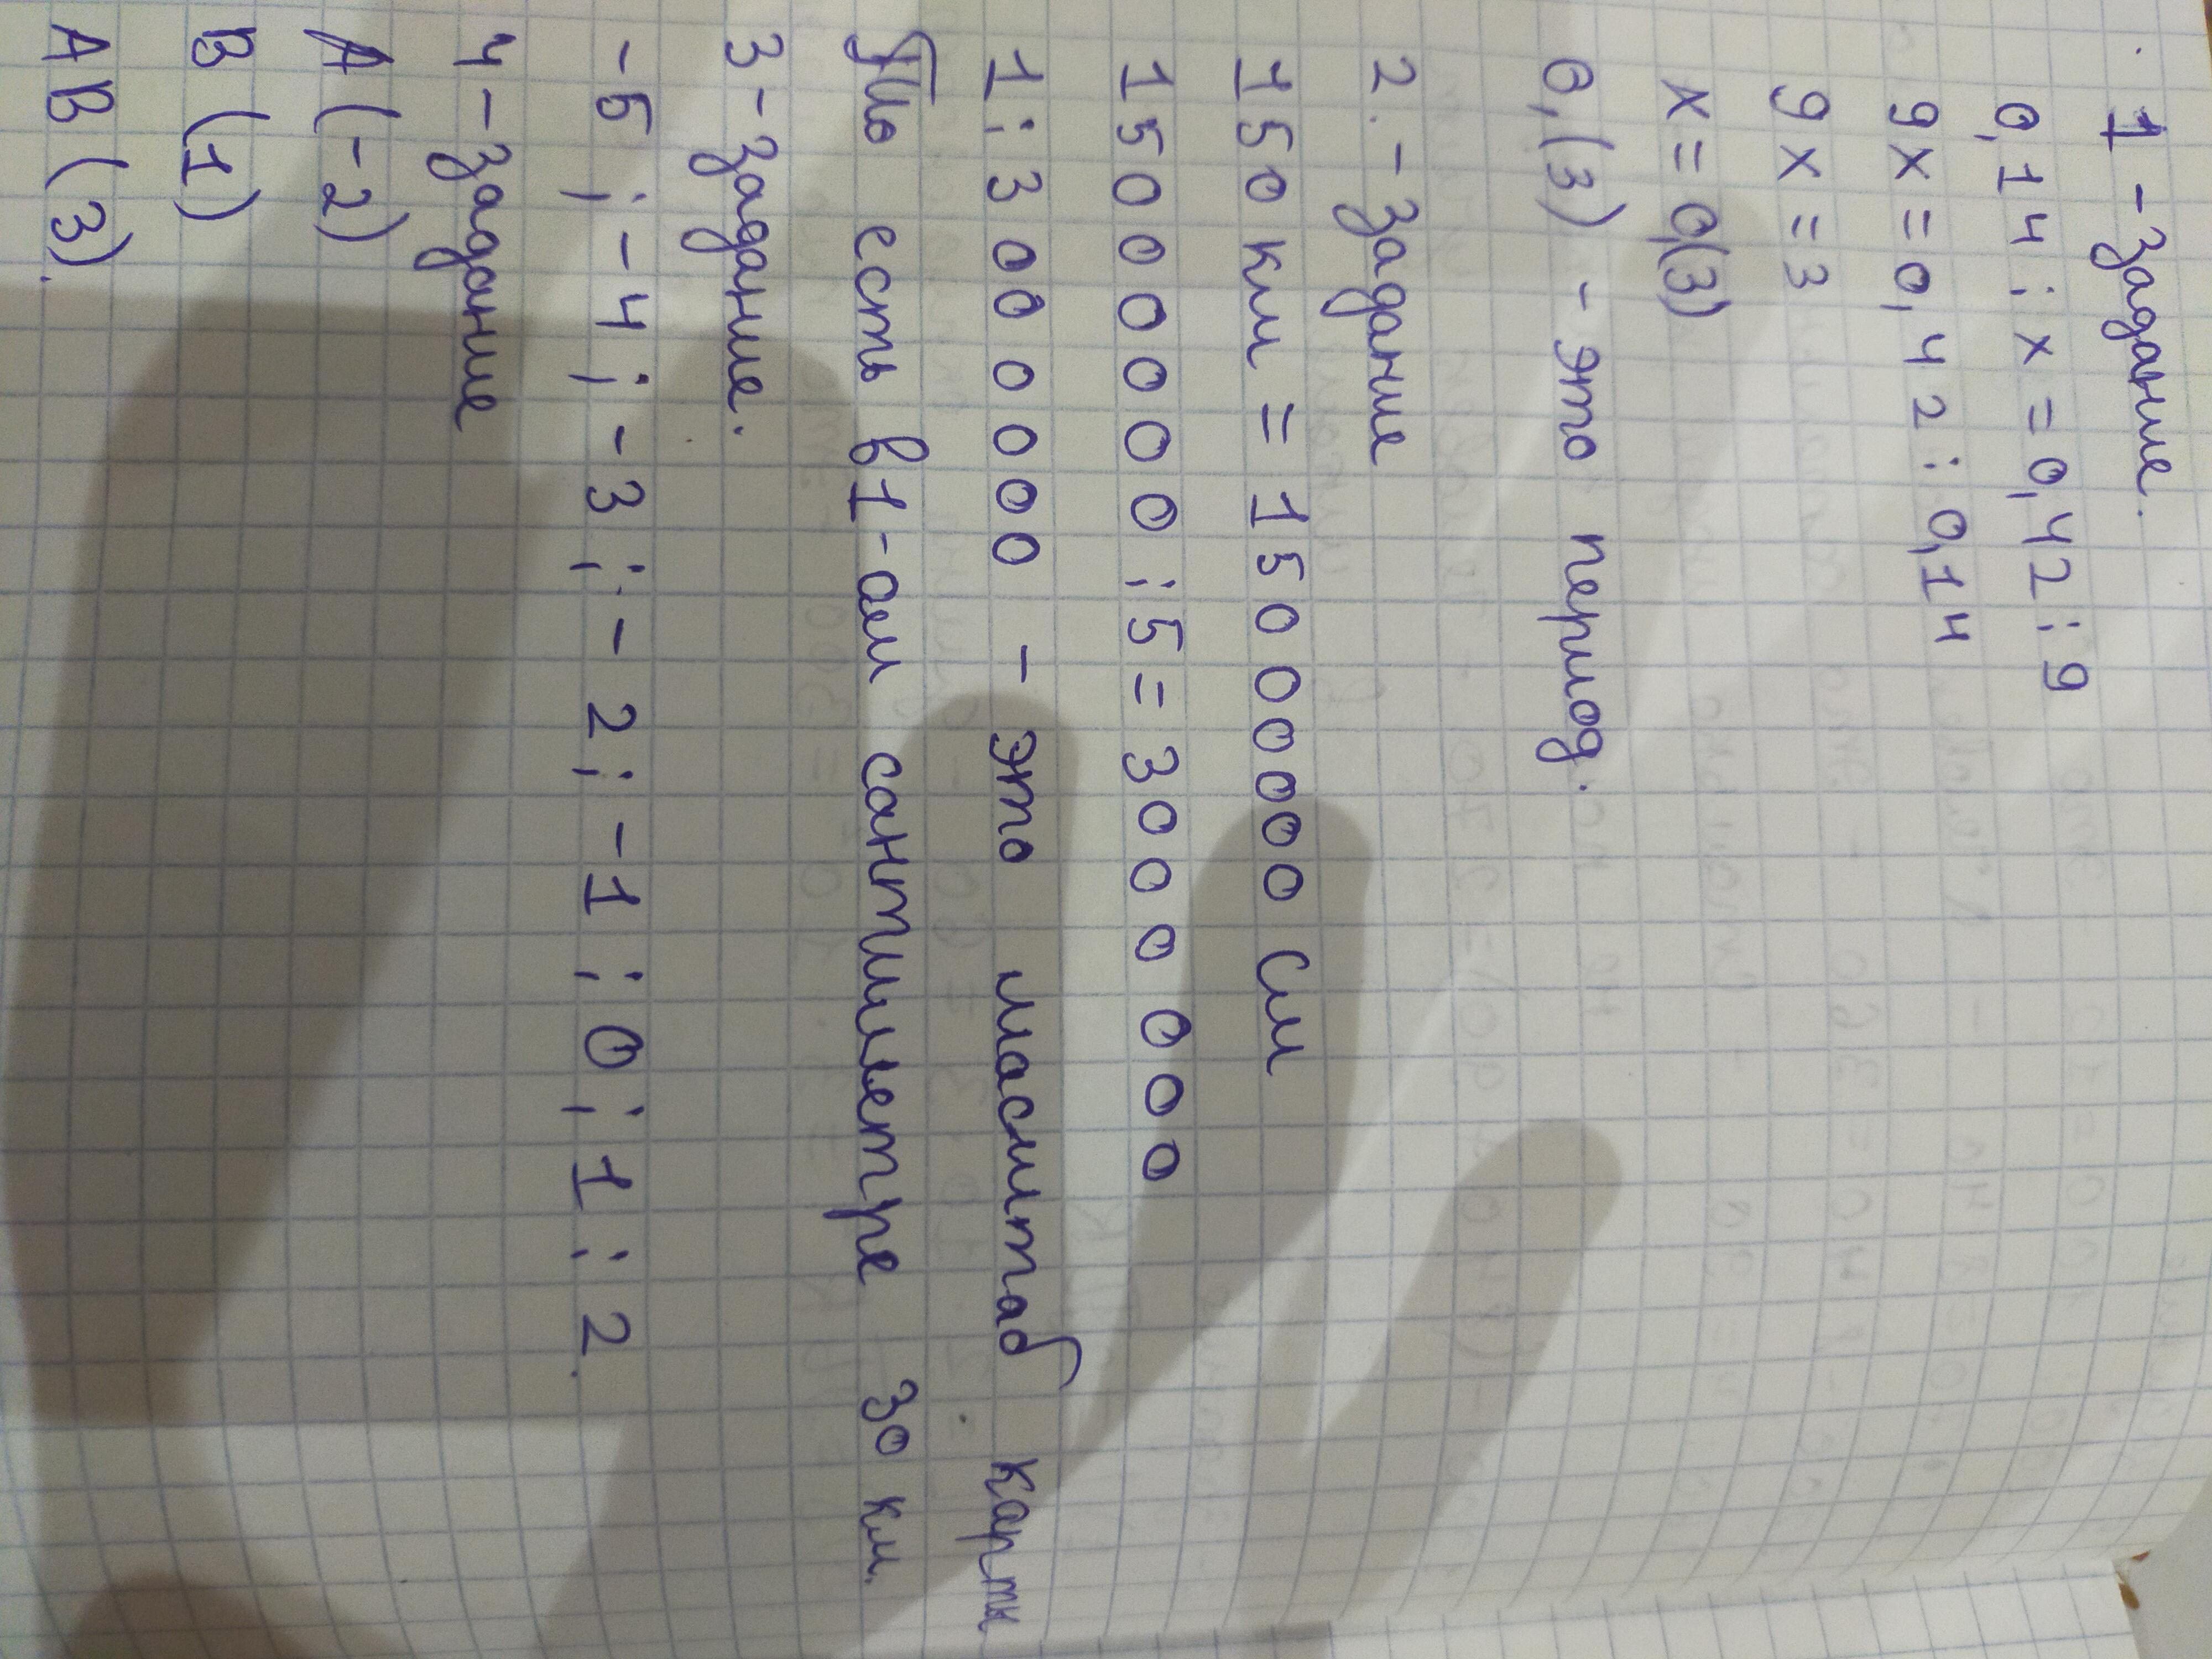 1 - задание.
0,14 : x = 0,42 : 9
9x = 0,42 : 0,14
9x = 3
x = 0,(3)
0,(3) - это период.
2. - задание
150 км = 15000000 см
15000000 : 5 = 3000 000
1:3000000 - это масштаб карты
То есть в 1-ом сантиметре 30 км.
3 - задание.
-5 ; -4 ; -3 ; -2 ; -1 ; 0 ; 1 ; 2.
4 - задание
A (-2)
B (1)
AB (3).